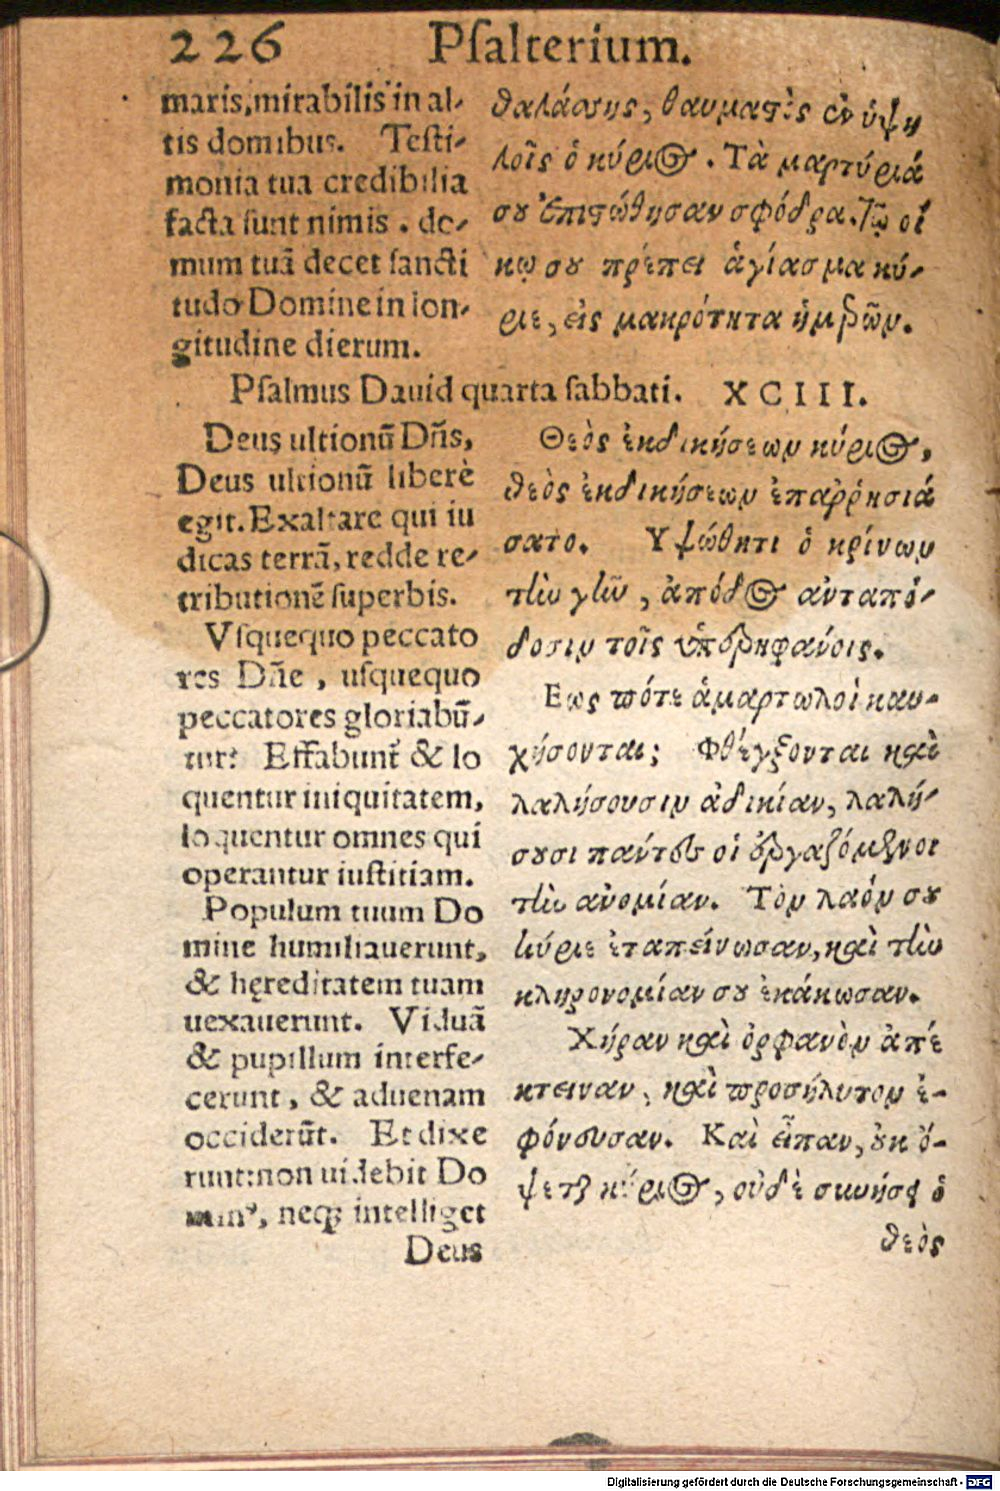 226 Psalterium.
maris, mirabilis in al-
tis domibus. Testi-
monia tua credibilia
facta sunt nimis . do-
mum tuã decet sancti
tudo Domine in lon-
gitudine dierum.
θαλάσσης, θαυμαστὸς ἐν ὑψη
λοῖς ὁ κύριος . Τὰ μαρτύριά
σου ἐπιστώθησαν σφόδρα. Τῷ οἴ
κῳ σου πρέπει ἁγίασμα κύ-
ριε, εἰς μακρότητα ἡμερῶν.
Psalmus Dauid quarta sabbati. XCIII.
Deus ultionũ Dñs,
Deus ultionũ liberè
egit. Exaltare qui iu
dicas terrã, redde re-
tributionẽ superbis.
Vsquequo peccato
res Dñe , usquequo
peccatores gloriabũ-
tur? Effabunt̃ & lo
quentur iniquitatem,
loquentur omnes qui
operantur iustitiam.
Populum tuum Do
mine humiliauerunt,
& hęreditatem tuam
uexauerunt. Viduã
& pupillum interfe-
cerunt, & aduenam
occiderũt. Et dixe
runt: non uidebit Do
minꝰ, neqꝫ intelliget
Deus
Θεὸς ἐκδικήσεων κύριος,
θεὸς ἐκδικήσεων ἐπαῤῥησιά
σατο. Υψώθητι ὁ κρίνων
τὴν γῆν , ἀπόδος ἀνταπό-
δοσιν τοῖς ὑπερηφάνοις.
Εως πότε ἁμαρτωλοὶ καυ-
χήσονται; Φθέγξονται καὶ
λαλήσουσιν ἀδικίαν, λαλή-
σουσι πάντες οἱ ἐργαζόμενοι
τὴν ἀνομίαν. Τὸν λαόν σου
κύριε ἐταπείνωσαν, καὶ τὴν
κληρονομίαν σου ἐκάκωσαν.
Χήραν καὶ ὀρφανὸν ἀπέ
κτειναν, καὶ προσήλυτον ἐ-
φόνευσαν. Καὶ εἶπαν, οὐκ ὄ-
ψεται κύριος, οὐδὲ συνήσει ὁ
θεὸς
Digitalisierung gefördert durch die Deutsche Forschungsgemeinschaft - DFG